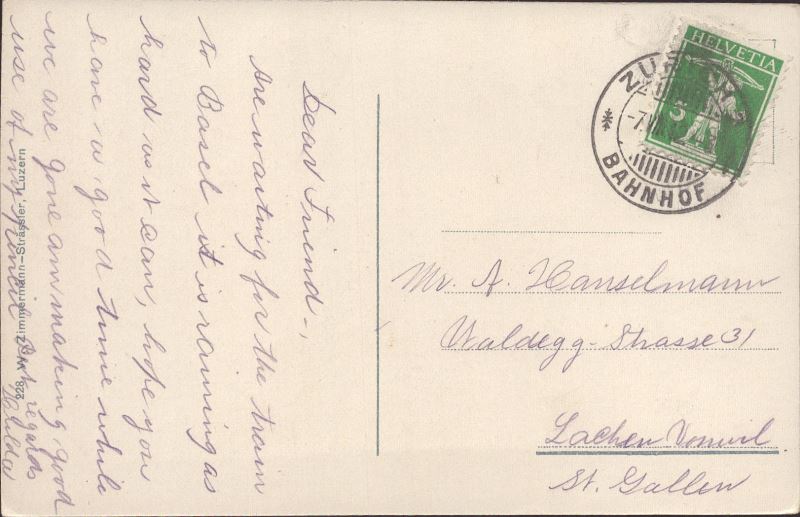 Dear Friend-,
Are waiting for the train
to Basel it is raining as
hard as it can, hope you
have a good time while
we are gone am making good
use of my pencil Best regards
Hulda
228 W. Zimmermann-Strässler, Luzern
HELVETIA
BAHNHOF
Mr. A. Hanselmann
Waldegg-Strasse 31
Lachen Vonwil
St. Gallen